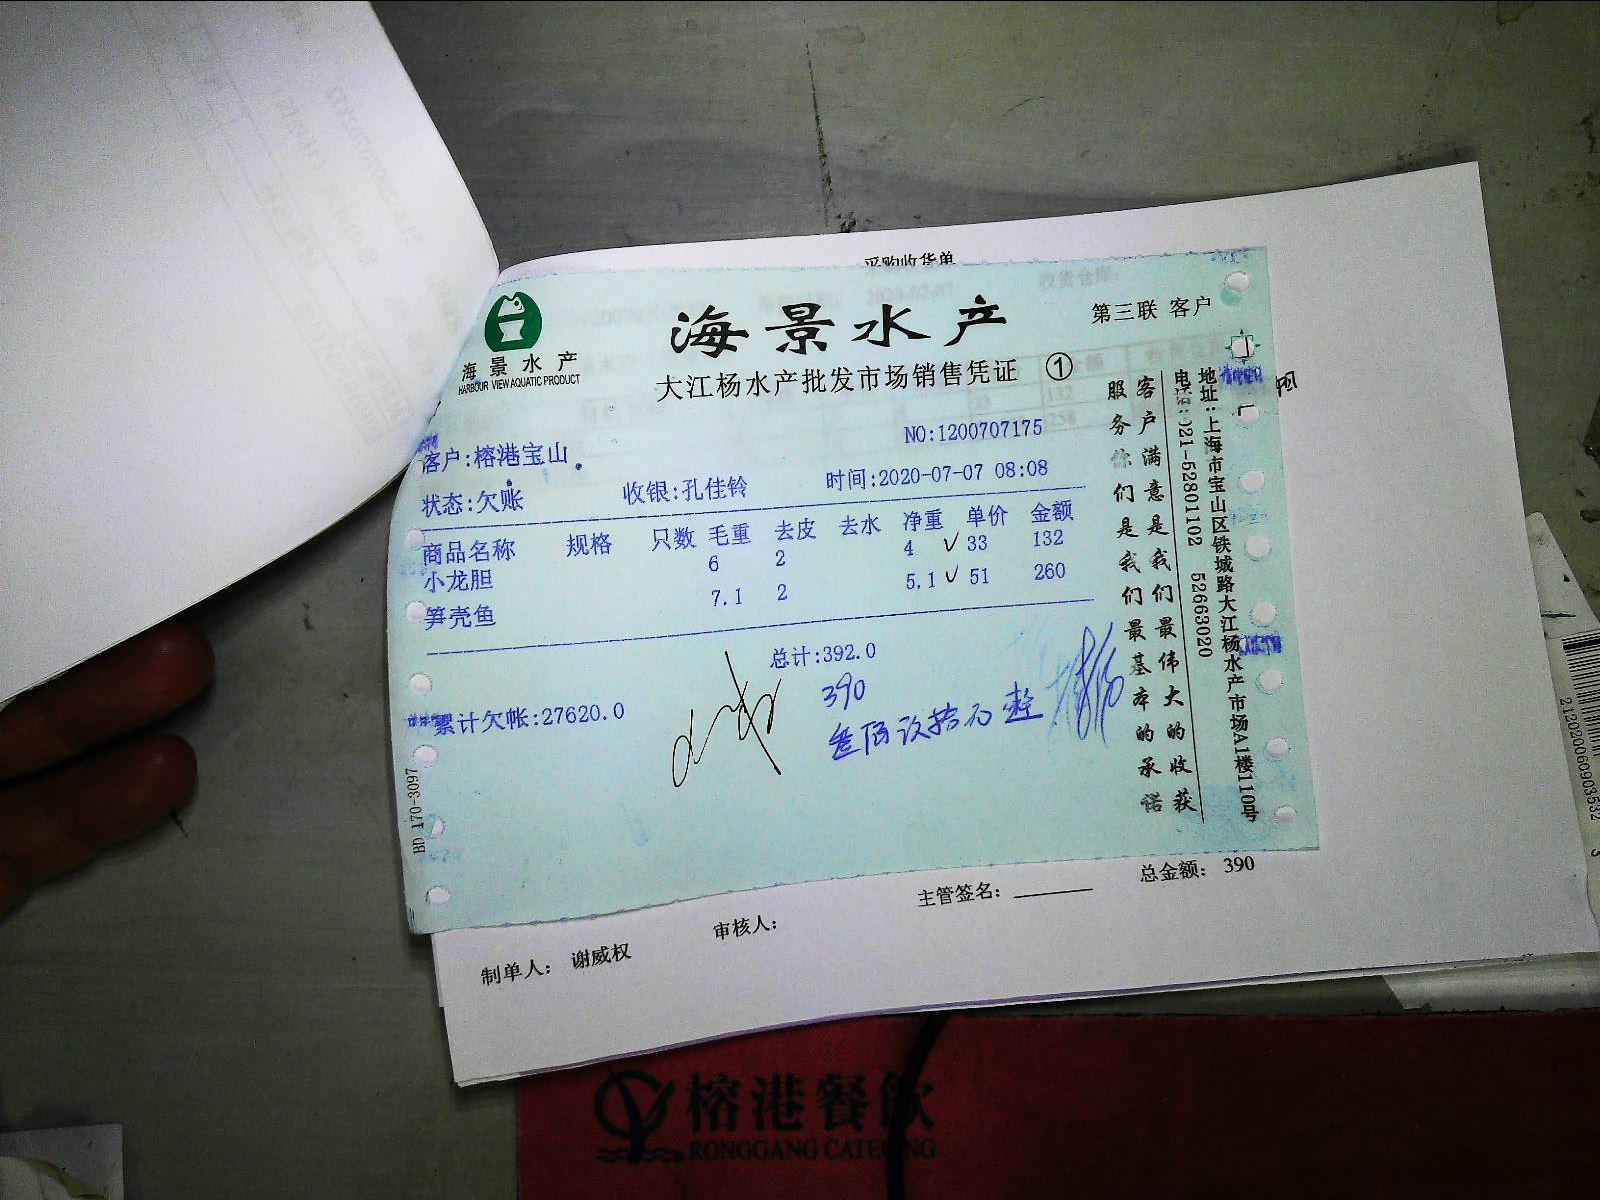 采购收货单
海景水产
HARBOUR VIEW AQUATIC PRODUCT
海景水产
第三联 客户
大江杨水产批发市场销售凭证 ①
客户:榕港宝山
NO:1200707175
状态:欠账 收银:孔佳铃 时间:2020-07-07 08:08
商品名称 规格 只数 毛重 去皮 去水 净重 单价 金额
小龙胆 6 2 4 ✓ 33 132
笋壳鱼 7.1 2 5.1 ✓ 51 260
总计:392.0
390
累计欠帐:27620.0
BD 170-3097
客户满意是我们最伟大的收获
服务你们是我们最基本的承诺
地址:上海市宝山区铁城路大江杨水产市场A1楼110号
电话:021-52801102 52663020
总金额: 390
主管签名:
审核人:
制单人: 谢威权
榕港餐飲
RONGGANG CATERING